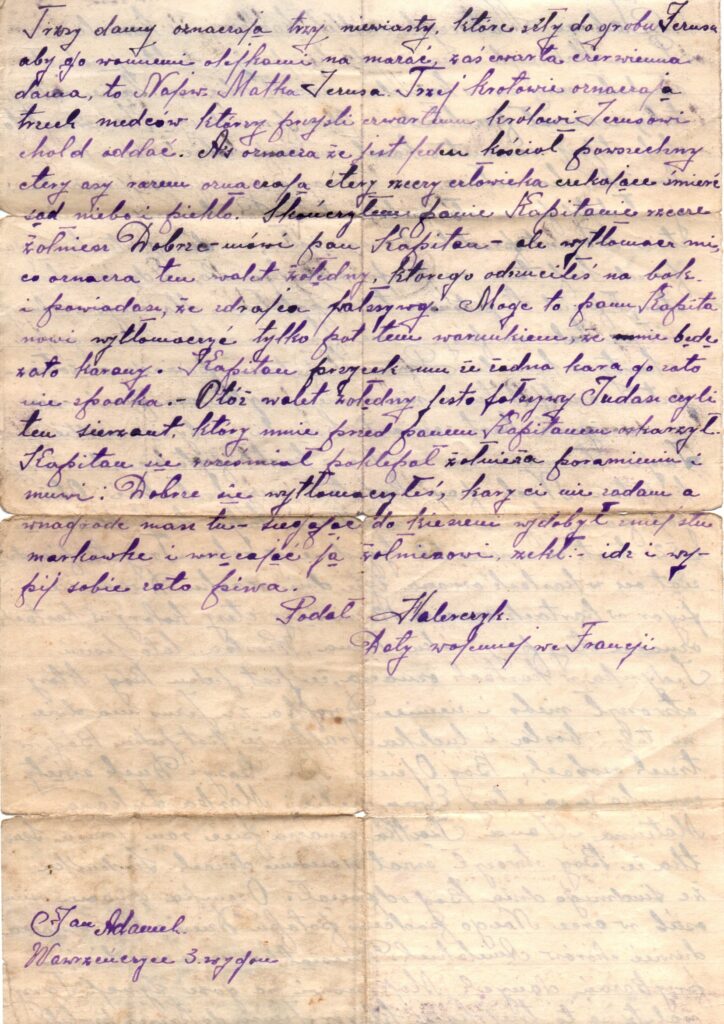 Trzy damy oznaczają trzy niewiasty, które szły do grobu Jezusa
aby go wonnemi olejkami na marać, zaś cwarta czerwienna
dama, to Najśw. Matka Jezusa. Trzej krolowie oznaczają
trzech medców którzy przyśli czwartemu królowi Jezusowi
chołd oddać. As oznacza że jest jeden kościół powszechny
cztery asy razem oznaczają cztery rzeczy człowieka czekające śmierć
sąd niebo i piekło. Skończyłem panie Kapitanie rzecze
żołnierz Dobrze - mówi pan Kapitan - ale wytłomacz mi,
co oznacza ten walet żołędny, ktorego odrzuciłeś na bok
i powiadasz, że zdrajca fałszywy. Moge to panu Kapita
nowi wytłomaczyć tylko pot tem warunkiem, że nie będę
zato karany. Kapitan przyrzek mu że żadna kara go zato
nie spodka. - Otóż walet żołędny jesto fałszywy Judasz czyli
ten sierzant, który mnie przed panem Kapitanem oskarzył.
Kapitan się rozesmiał poklepał żołnieża poramieniu i
muwi: Dobrze się wytłomaczyłeś, kary ci nie zadam a
wnagrode masz tu - siegając do kieszeni wydobył zniej stu
markowke i wręczając ją żołnierzowi, rzekł: - idz i wy-
pij sobie zato piwa.
Podał Halerczyk.
Doby wojennej we Francji
Jan Adamek.
Wawrzeńczyce